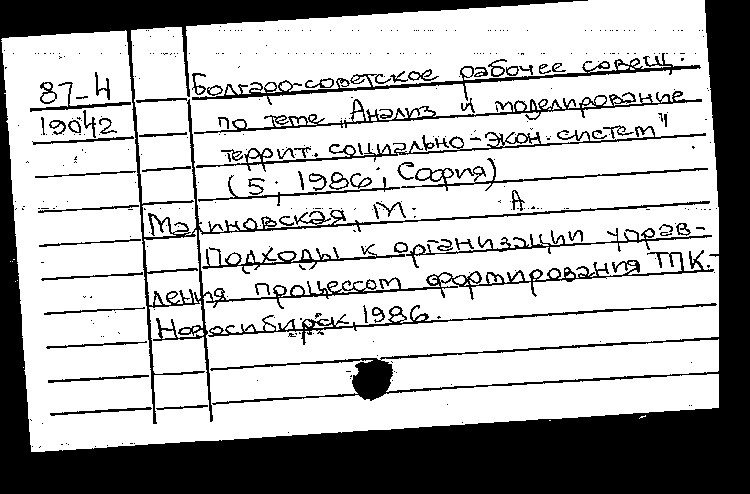 87-4 Болгаро-советское рабочее совещ.
19042 по теме „Анализ и моделирование
террит. социально-экон. систем"
(5; 1986; София)
Малиновская, М. А.
Подходы к организации управ-
ления процессом формирования ТПК.-
Новосибирск, 1986.